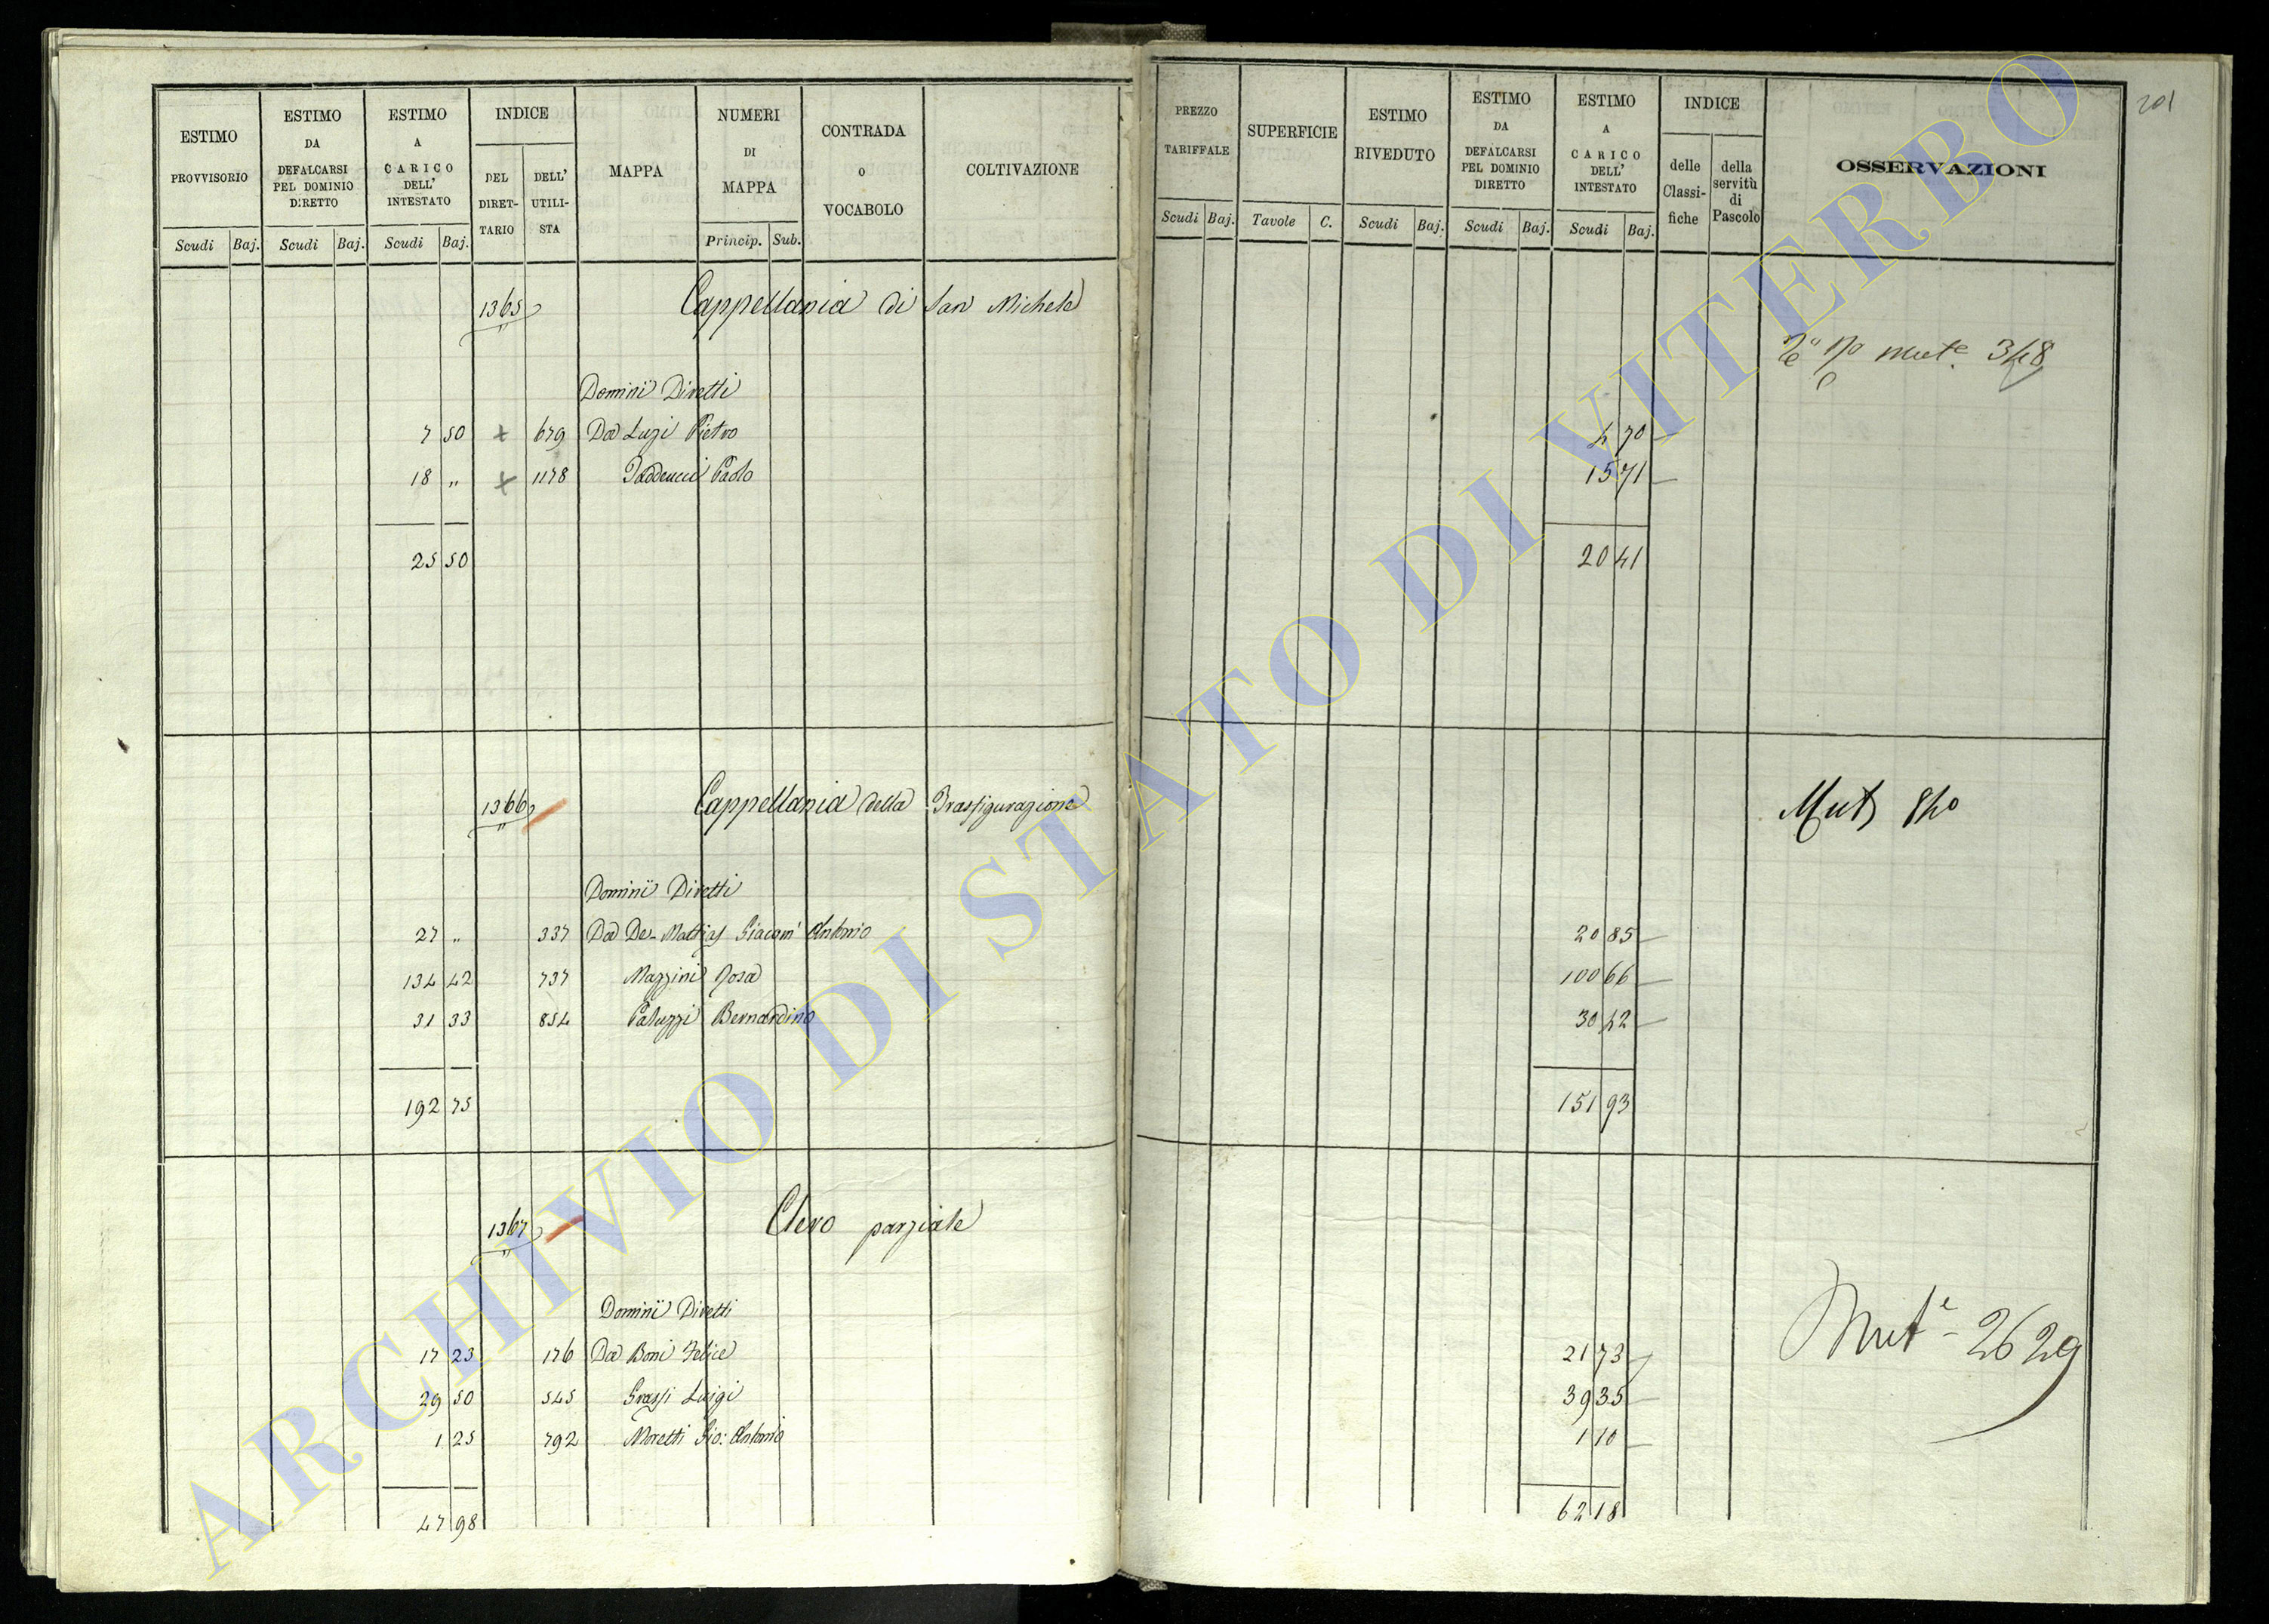 201
ESTIMO PROVVISORIO
ESTIMO DA DEFALCARSI PEL DOMINIO DIRETTO
ESTIMO A CARICO DELL' INTESTATO
INDICE
DEL DIRET-TARIO
DELL' UTILI-STA
MAPPA
NUMERI DI MAPPA
CONTRADA O VOCABOLO
COLTIVAZIONE
Scudi Baj. Scudi Baj. Scudi Baj. Princip. Sub.
PREZZO TARIFFALE
SUPERFICIE
ESTIMO RIVEDUTO
ESTIMO DA DEFALCARSI PEL DOMINIO DIRETTO
ESTIMO A CARICO DELL' INTESTATO
INDICE
delle Classi-fiche
della servitù di Pascolo
OSSERVAZIONI
Scudi Baj. Tavole C. Scudi Baj. Scudi Baj. Scudi Baj.
1365 Cappellania di San Michele
mut.e 348
Dominii Diretti
7 50 × 679 Da Luzi Pietro 4 70
18 „ × 1178 Taddeucci Paolo 15 71
25 50 20 41
1366 Cappellania della Trasfigurazione Mut 840
Dominii Diretti
27 „ 337 Da De-Mattias Giacom' Antonio 20 85
134 42 737 Mazzini Rosa 100 66
31 33 854 Paluzzi Bernardino 30 42
192 75 151 93
1367 Clero parziale
Dominii Diretti
Mut.e 2629
17 23 176 Da Boni Felice 21 73
29 50 545 Grassi Luigi 39 35
1 25 792 Moretti Gio: Antonio 1 10
47 98 62 18
ARCHIVIO DI STATO DI VITERBO